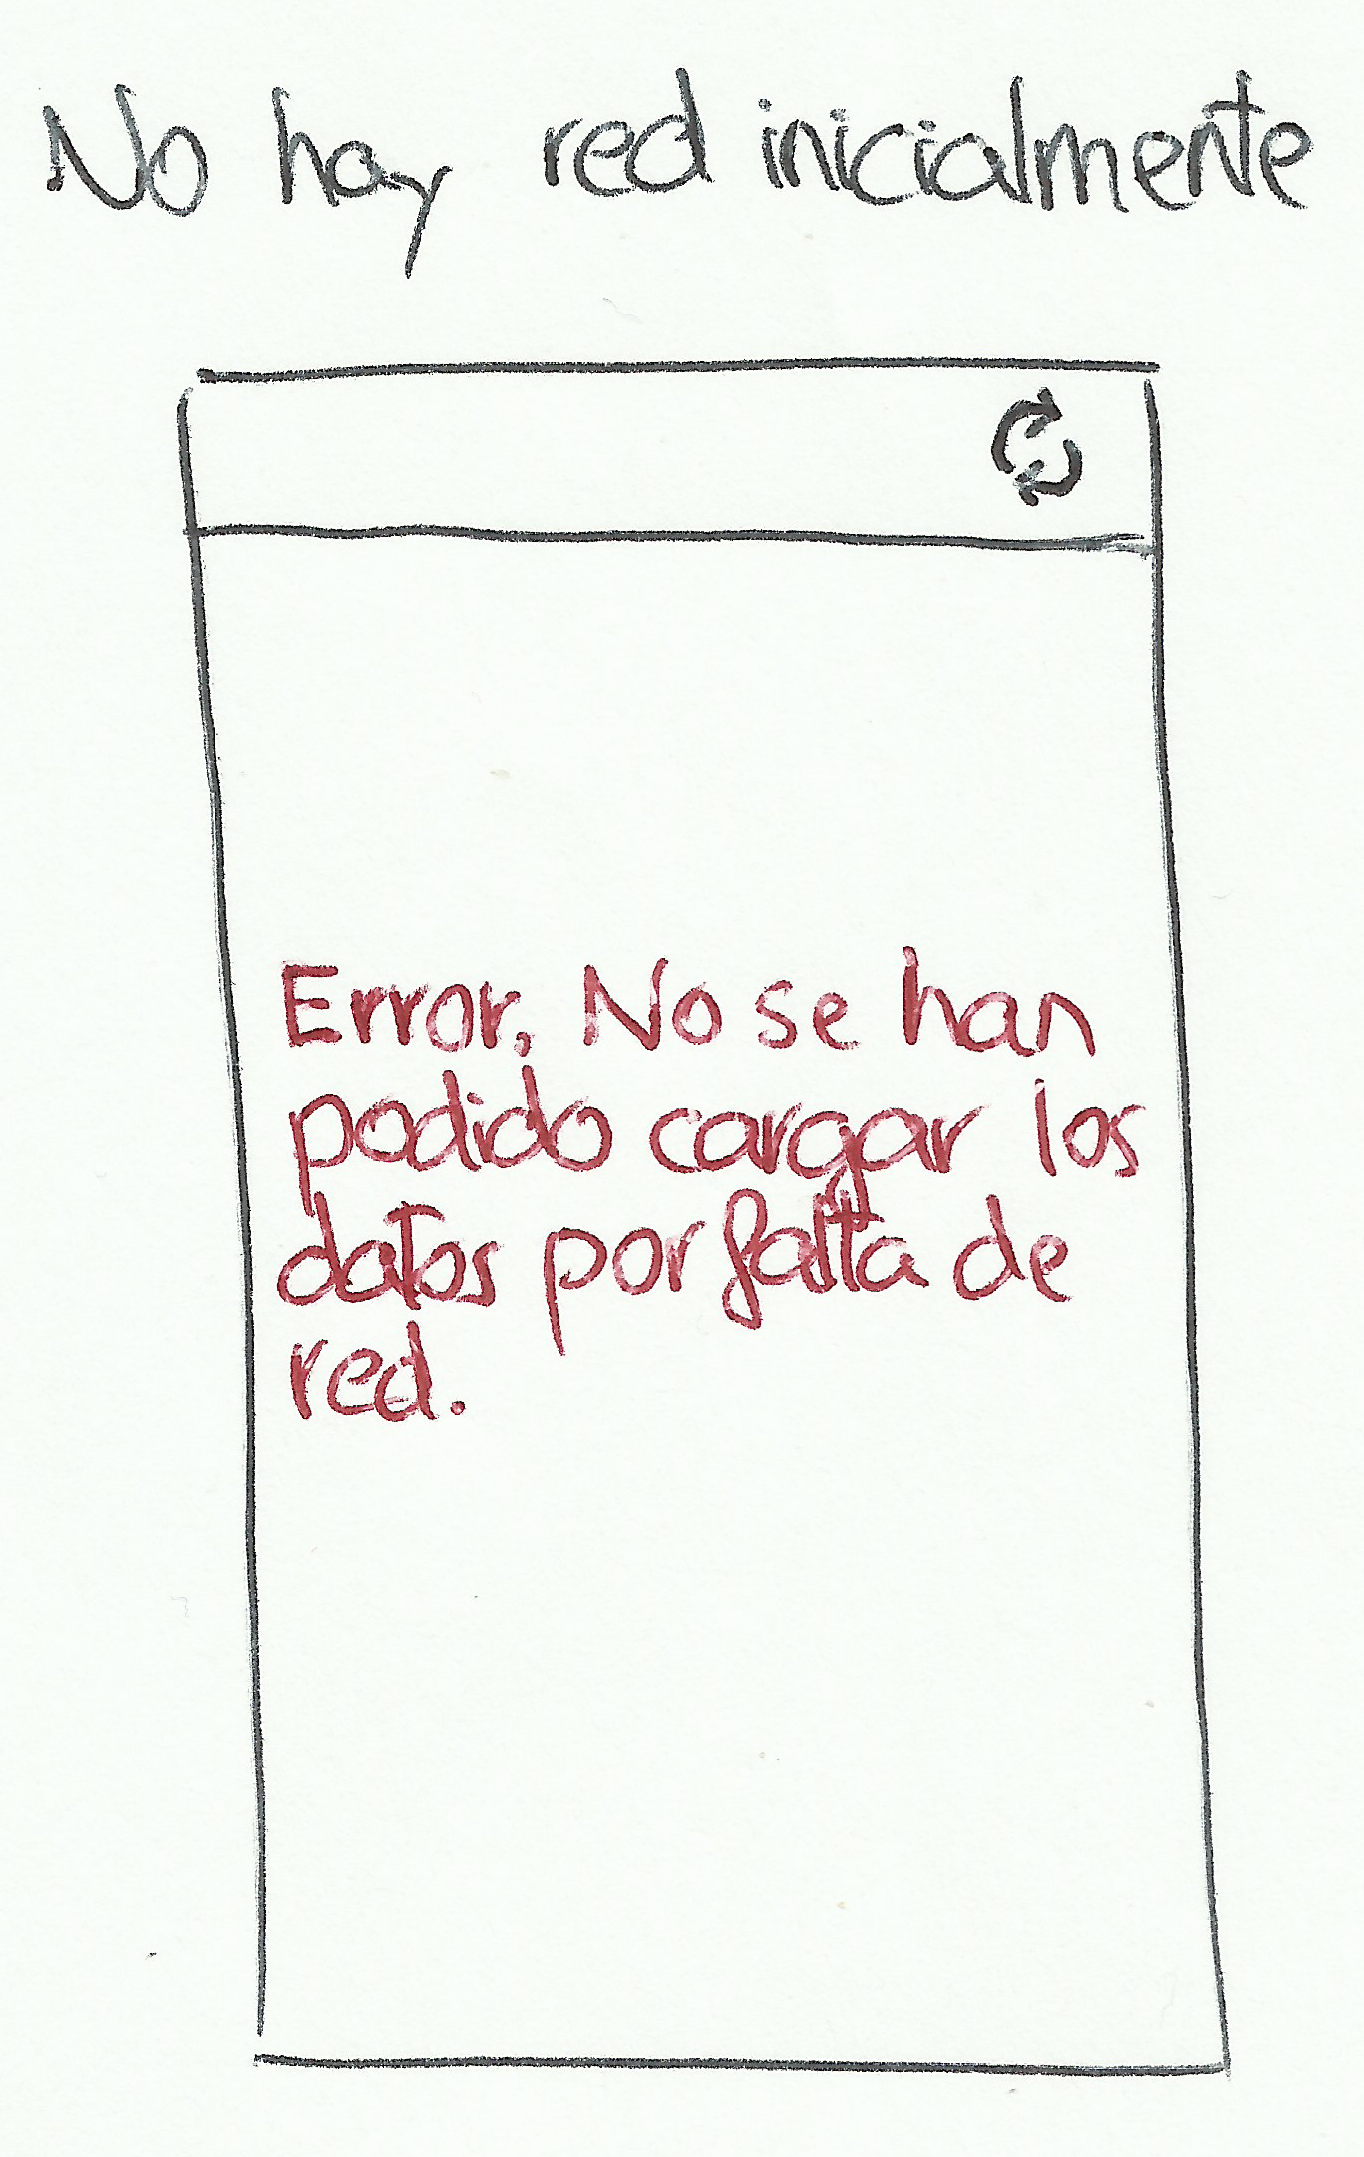 No hay red inicialmente
Error. No se han
podido cargar los
datos por falta de
red.